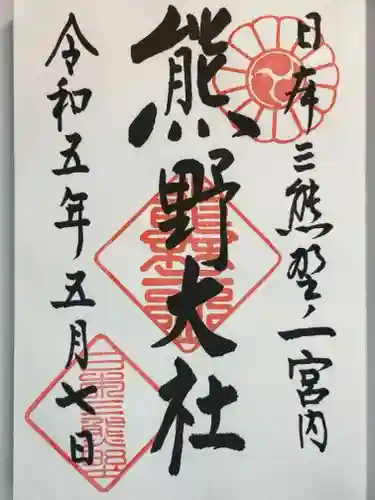 日本三熊野之一宮内
熊野大社
令和五年五月七日